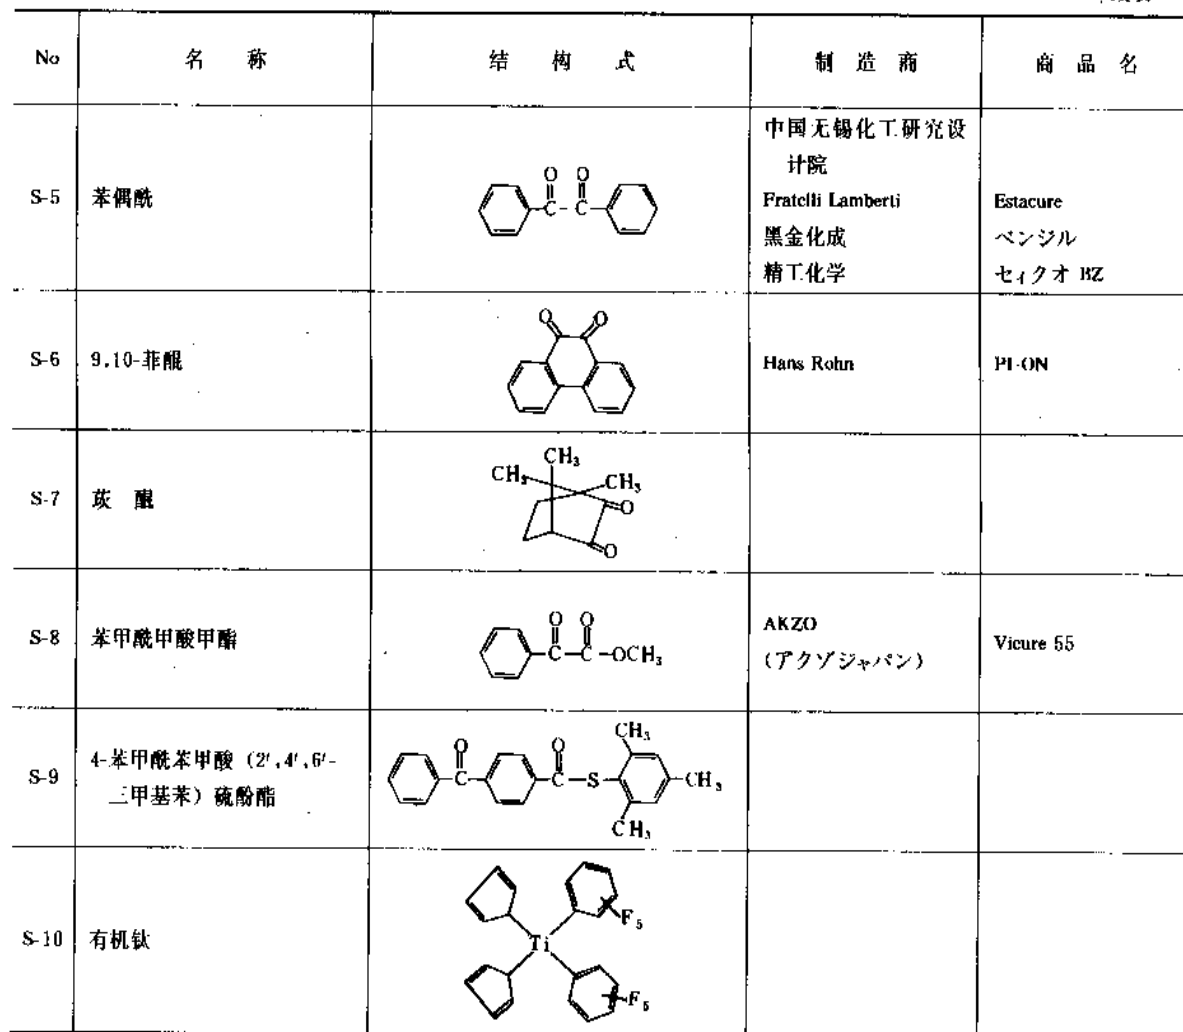 No 名 称 结 构 式 制 造 商 商 品 名
S-5 苯偶酰
O O
C-C
中国无锡化工研究设
计院
Fratelli Lamberti Estacure
黑金化成 ベンジル
精工化学 セィクオ BZ
S-6 9,10-菲醌
O O
Hans Rohn PI-ON
S-7 莰 醌
CH₃
CH₃ CH₃
O
O
S-8 苯甲酰甲酸甲酯
O O
C-C-OCH₃
AKZO
(アクゾジャパン) Vicure 55
S-9 4-苯甲酰苯甲酸（2′,4′,6′-
三甲基苯）硫酚酯
O O CH₃
C C-S CH₃
CH₃
S-10 有机钛
F₅
Ti
F₅